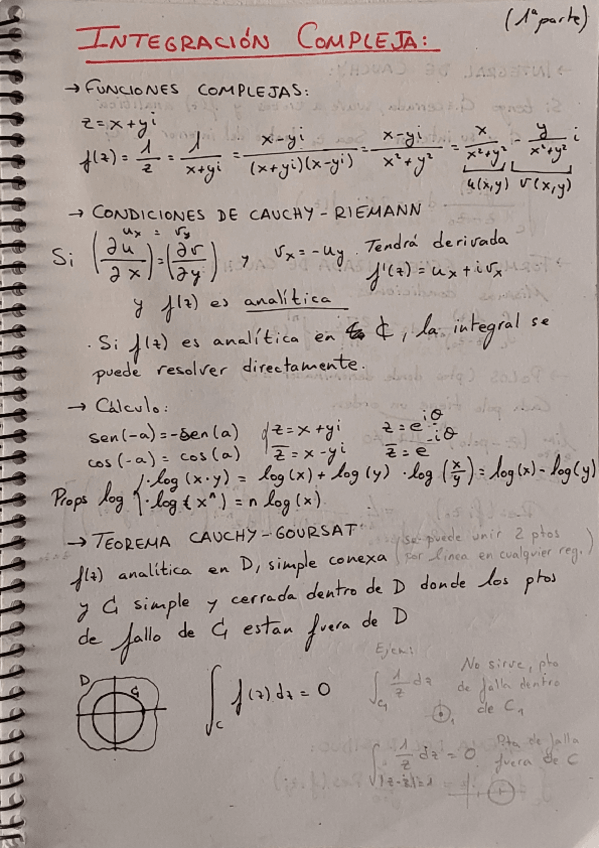 (1ª parte)
INTEGRACIÓN COMPLEJA:
→ FUNCIONES COMPLEJAS:
z = x + yi
f(z) = 1/z = 1/(x+yi) = (x-yi)/((x+yi)(x-yi)) = (x-yi)/(x²+y²) = x/(x²+y²) - y/(x²+y²) i
u(x,y) v(x,y)
→ CONDICIONES DE CAUCHY-RIEMANN
u_x = v_y
Si (∂u/∂x) = (∂v/∂y) y v_x = -u_y. Tendrá derivada
f'(z) = u_x + i v_x
y f(z) es analítica
· Si f(z) es analítica en ₵, la integral se
puede resolver directamente.
→ Cálculo:
sen(-a) = -sen(a) z = x + yi z = e^{iθ}
cos(-a) = cos(a) z̅ = x - yi z̅ = e^{-iθ}
Props log { · log(x·y) = log(x) + log(y) · log(x/y) = log(x) - log(y)
· log(x^n) = n log(x)
→ TEOREMA CAUCHY-GOURSAT (se puede unir 2 ptos
f(z) analítica en D, simple conexa por linea en cualquier reg.)
y C₁ simple y cerrada dentro de D donde los ptos
de fallo de C₁ estan fuera de D
D C₁
∫_C f(z) dz = 0
Ejem:
∫_{C₁} 1/z dz No sirve, pto
de falla dentro
de C₁
∫_{|z-i|=1} 1/z dz = 0 Pto de falla
fuera de C